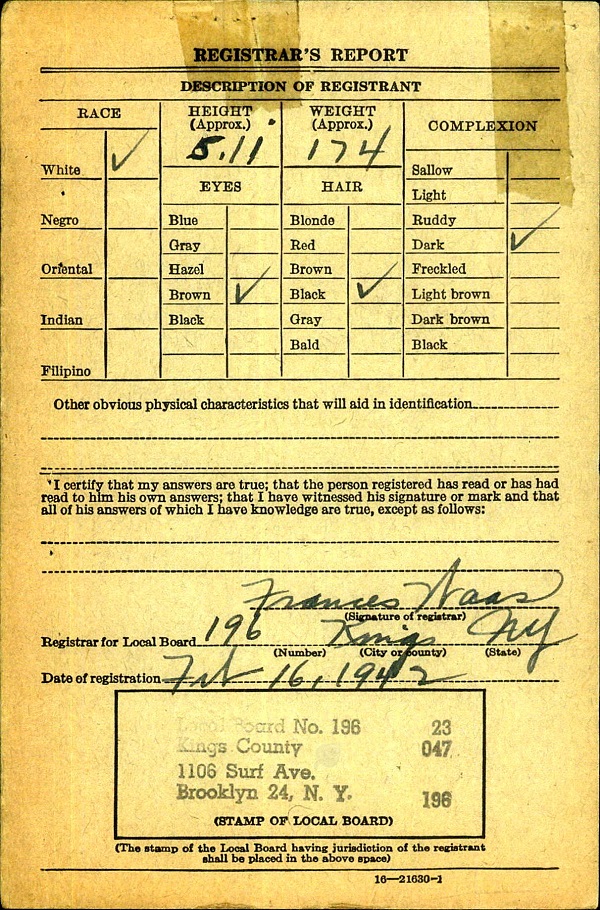 REGISTRAR'S REPORT
DESCRIPTION OF REGISTRANT
RACE
HEIGHT
(Approx.)
WEIGHT
(Approx.)
COMPLEXION
5.11
174
White ✓
Negro
Oriental
Indian
Filipino
EYES
Blue
Gray
Hazel
Brown ✓
Black
HAIR
Blonde
Red
Brown
Black ✓
Gray
Bald
Sallow
Light
Ruddy
Dark ✓
Freckled
Light brown
Dark brown
Black
Other obvious physical characteristics that will aid in identification
I certify that my answers are true; that the person registered has read or has had
read to him his own answers; that I have witnessed his signature or mark and that
all of his answers of which I have knowledge are true, except as follows:
Frances Waas
(Signature of registrar)
Registrar for Local Board 196 Kings NY
(Number) (City or county) (State)
Date of registration Feb 16, 1942
Local Board No. 196 23
Kings County 047
1106 Surf Ave.
Brooklyn 24, N. Y. 196
(STAMP OF LOCAL BOARD)
(The stamp of the Local Board having jurisdiction of the registrant
shall be placed in the above space)
16—21630-1